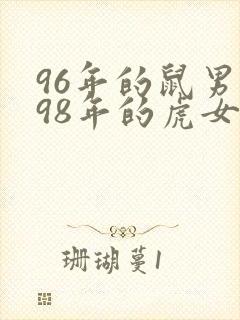 96年的鼠男
98年的虎女
珊瑚蔓1